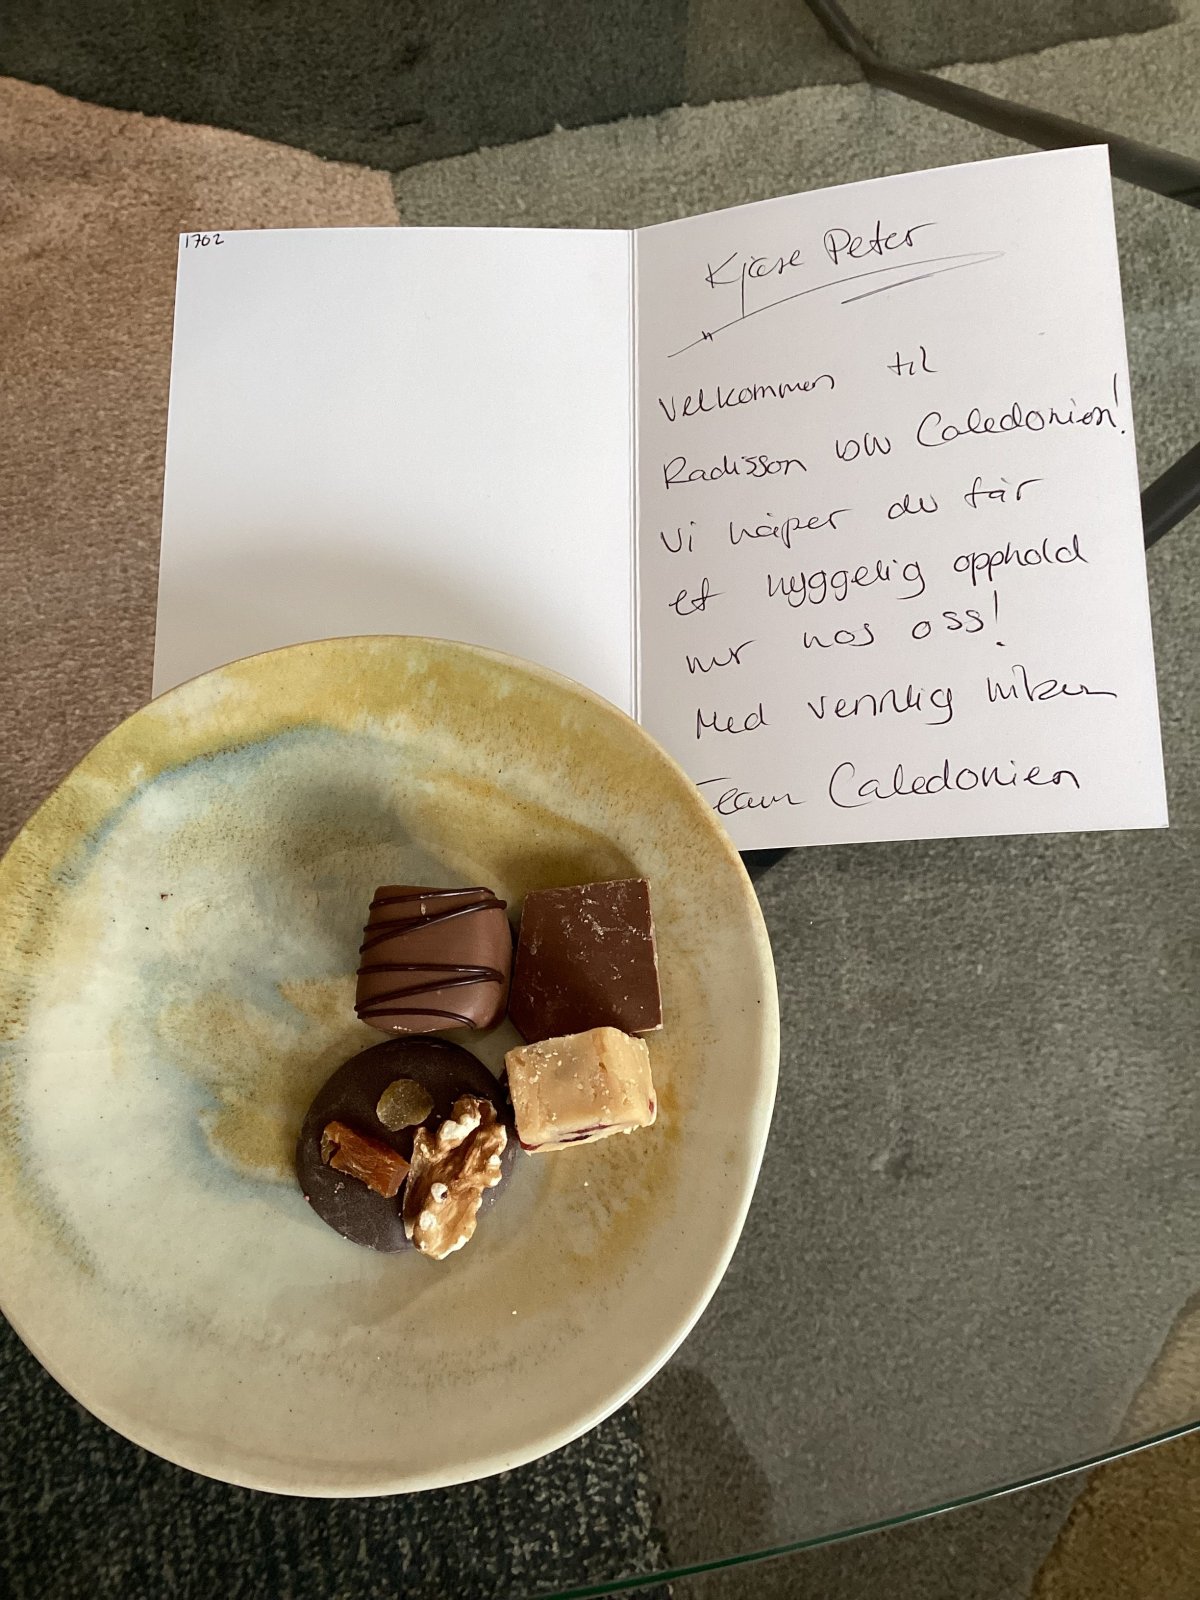 1702
Kjære Peter
Velkommen til
Radisson blu Caledonien!
Vi håper du får
et hyggelig opphold
her hos oss!
Med vennlig hilsen
Team Caledonien